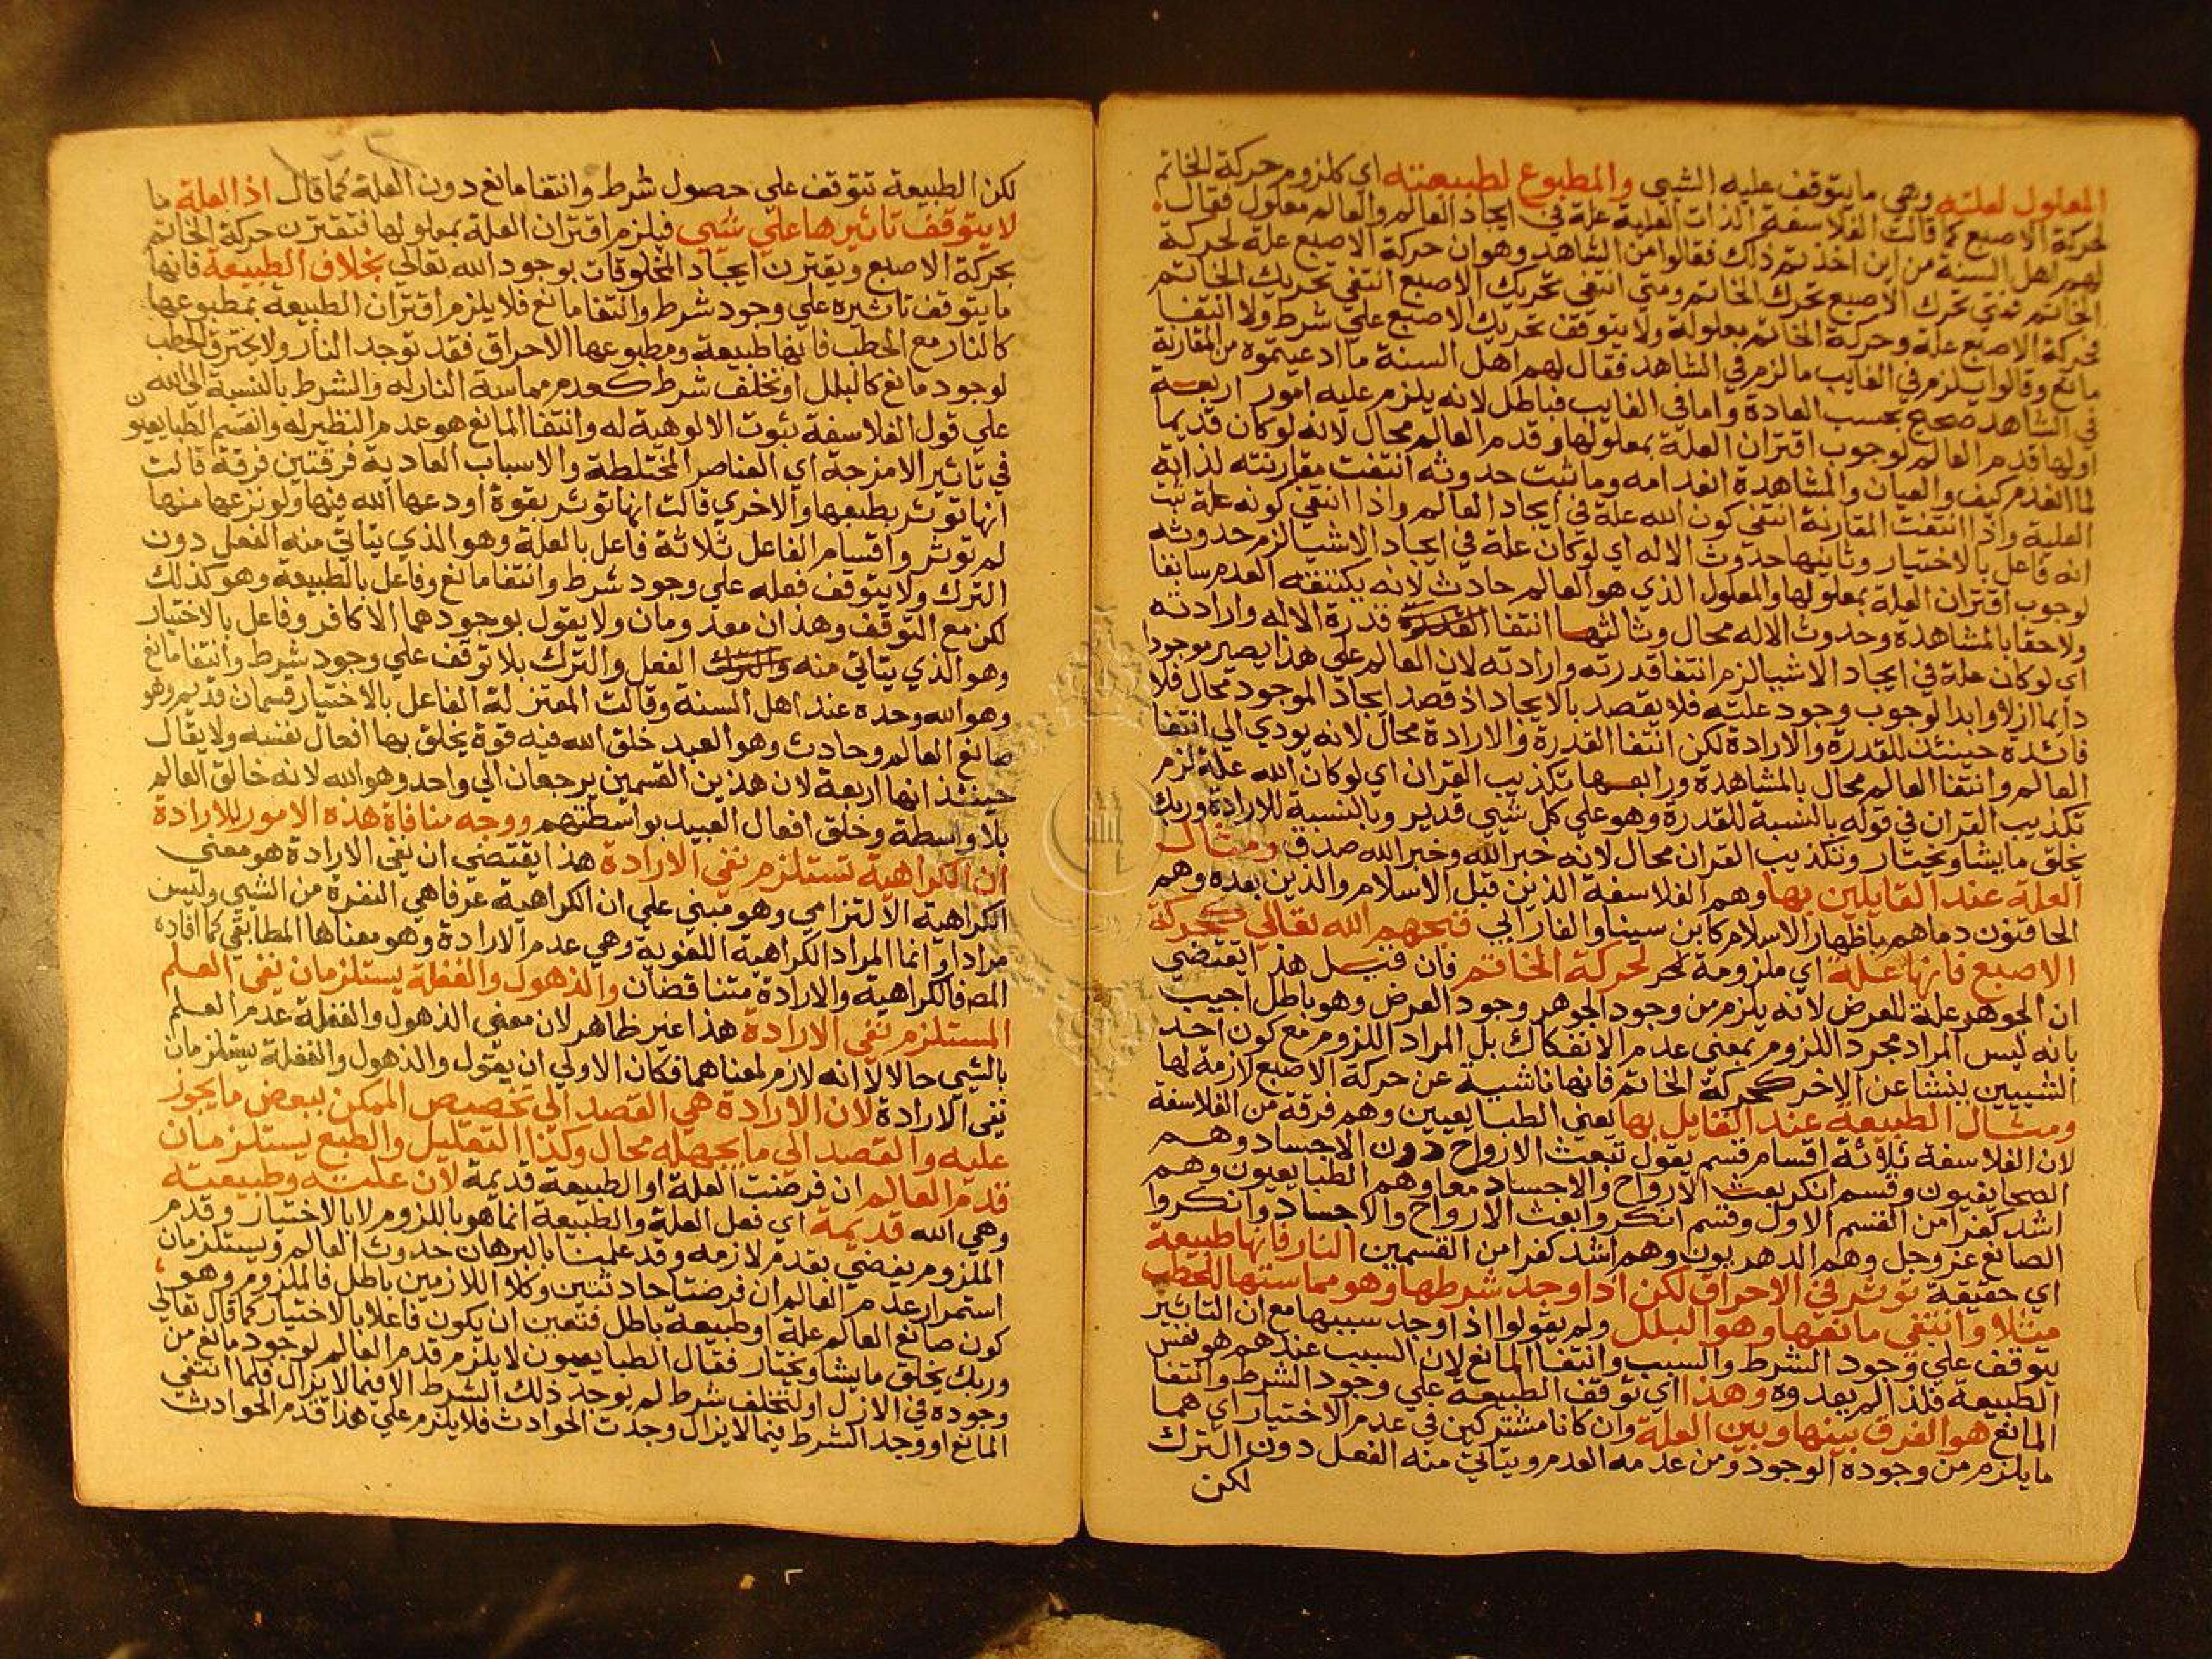 المعلول لعلته وهي ما يتوقف عليه الشيي والمطبوع لطبيعته اي كلزوم حركة الخاتم
لحركة الاصبع كما قالت الفلاسفة الذات العلية علة في ايجاد العالم والعالم معلول فقال
لهم اهل السنة من اين اخذتم ذلك فقالوا من الشاهد وهو ان حركة الاصبع علة لحركة
الخاتم فمتي تحرك الاصبع تحرك الخاتم ومتي انتفي تحريك الاصبع انتفي تحريك الخاتم
فحركة الاصبع علة وحركة الخاتم معلولة ولا يتوقف تحريك الاصبع علي شرط ولا انتفا
مانع وقالوا يلزم في الغايب ما لزم في الشاهد فقال لهم اهل السنة ما ادعيتموه من المقارنة
في الشاهد صحيح بحسب العادة واما في الغايب فباطل لانه يلزم عليه امور اربعة
اولها قدم العالم لوجوب اقتران العلة بمعلولها وقدم العالم محال لانه لو كان قديما
لما انعدم كيف والعيان والمشاهدة انعدامه وما ثبت حدوثه انتفت مقارنته لذاته
العلية واذا انتفت المقارنة انتفي كون الله علة في ايجاد العالم واذا انتفي كونه علة ثبت
انه فاعل بالاختيار وثانيها حدوث الاله اي لو كان علة في ايجاد الاشيا لزم حدوثه
لوجوب اقتران العلة بمعلولها والمعلول الذي هو العالم حادث لانه يكتنفه العدم سابقا
ولاحقا بالمشاهدة وحدوث الاله محال وثالثها انتفا القدرة قدرة الاله وارادته
اي لو كان علة في ايجاد الاشيا لزم انتفا قدرته وارادته لان العالم علي هذا يصير موجودا
دايما ازلا وابدا لوجوب وجود علته فلا يقصد بالايجاد اذ قصد ايجاد الموجود محال فلا
فائدة حينئذ للقدرة والارادة لكن انتفا القدرة والارادة محال لانه يودي الي انتفا
العالم وانتفا العالم محال بالمشاهدة ورابعها تكذيب القران اي لو كان الله علة لزم
تكذيب القران في قوله بالنسبة للقدرة وهو علي كل شيي قدير وبالنسبة للارادة وربك
يخلق ما يشا ويختار وتكذيب القران محال لانه خبر الله وخبر الله صدق ومثال
العلة عند القايلين بها وهم الفلاسفة الذين قبل الاسلام والذين بعده وهم
الحاقنون دماهم باظهار الاسلام كابن سينا والفارابي قبحهم الله تعالي كحركة
الاصبع فانها علة اي ملزومة لحر لحركة الخاتم فان قيل هذا يقتضي
ان الجوهر علة للعرض لانه يلزم من وجود الجوهر وجود العرض وهو باطل اجيب
بانه ليس المراد مجرد اللزوم بمعني عدم الانفكاك بل المراد اللزوم مع كون احد
الشييين ينشا عن الاخر كحركة الخاتم فانها ناشية عن حركة الاصبع لازمة لها
ومثال الطبيعة عند القايل بها يعني الطبايعيين وهم فرقة من الفلاسفة
لان الفلاسفة ثلاثة اقسام قسم يقول تبعث الارواح دون الاجساد وهم
الصحايفيون وقسم انكر بعث الارواح والاجساد معا وهم الطبايعيون وهم
اشد كفرا من القسم الاول وقسم انكروا بعث الارواح والاجساد وانكروا
الصانع عز وجل وهم الدهريون وهم اشد كفرا من القسمين النار فانها طبيعة
اي حقيقة توثر في الاحراق لكن اذا وجد شرطها وهو مماستها للحطب
مثلا وانتفي مانعها وهو البلل ولم يقولوا اذا وجد سببها مع ان التاثير
يتوقف علي وجود الشرط والسبب وانتفا المانع لان السبب عندهم هو نفس
الطبيعة فلذا لم يعدوه وهذا اي توقف الطبيعة علي وجود الشرط وانتفا
المانع هو الفرق بينها وبين العلة وان كانا مشتركين في عدم الاختيار اي هما
ما يلزم من وجوده الوجود ومن عدمه العدم ويتاتي منه الفعل دون الترك
لكن
لكن الطبيعة تتوقف علي حصول شرط وانتفا مانع دون العلة كما قال اذ العلة ما
لا يتوقف تاثيرها علي شيي فيلزم اقتران العلة بمعلولها فتقترن حركة الخاتم
بحركة الاصبع ويقترن ايجاد المخلوقات بوجود الله تعالي بخلاف الطبيعة فانها
ما يتوقف تاثيره علي وجود شرط وانتفا مانع فلا يلزم اقتران الطبيعة بمطبوعها
كالنار مع الحطب فانها طبيعة ومطبوعها الاحراق فقد توجد النار ولا يحترق الحطب
لوجود مانع كالبلل او تخلف شرط كعدم مماسة النار له والشرط بالنسبة الي الله
علي قول الفلاسفة ثبوت الالوهية له وانتفا المانع هو عدم النظير له وانقسم الطبايعيون
في تاثير الامزجة اي العناصر المختلطة والاسباب العادية فرقتين فرقة قالت
انها توثر بطبعها والاخري قالت انها توثر بقوة اودعها الله فيها ولو نزعها منها
لم توثر واقسام الفاعل ثلاثة فاعل بالعلة وهو الذي يتاتي منه الفعل دون
الترك ولا يتوقف فعله علي وجود شرط وانتفا مانع وفاعل بالطبيعة وهو كذلك
لكن مع التوقف وهذان معدومان ولا يقول بوجودهما الا كافر وفاعل بالاختيار
وهو الذي يتاتي منه والترك الفعل والترك بلا توقف علي وجود شرط وانتفا مانع
وهو الله وحده عند اهل السنة وقالت المعتزلة الفاعل بالاختيار قسمان قديم وهو
صانع العالم وحادث وهو العبد خلق الله فيه قوة يخلق بها افعال نفسه ولا يقال
حينئذ انها اربعة لان هذين القسمين يرجعان الي واحد وهو الله لانه خالق العالم
بلا واسطة وخلق افعال العبيد بواسطتهم ووجه منافاة هذه الامور للارادة
ان الكراهية تستلزم نفي الارادة هذا يقتضي ان نفي الارادة هو معني
الكراهية الالتزامي وهو مبني علي ان الكراهية عرفا هي النفرة من الشيي وليس
مرادا وانما المراد الكراهية اللغوية وهي عدم الارادة وهو معناها المطابقي كما افاده
المص فالكراهية والارادة متناقضان والذهول والغفلة يستلزمان نفي العلم
المستلزم نفي الارادة هذا غير ظاهر لان معني الذهول والغفلة عدم العلم
بالشيي حالا لا انه لازم لمعناهما فكان الاولي ان يقول والذهول والغفلة يستلزمان
نفي الارادة لان الارادة هي القصد الي تخصيص الممكن ببعض ما يجوز
عليه والقصد الي ما يجهله محال وكذا التعليل والطبع يستلزمان
قدم العالم ان فرضت العلة او الطبيعة قديمة لان علته وطبيعته
وهي الله قديمة اي فعل العلة والطبيعة انما هو باللزوم لا بالاختيار وقدم
الملزوم يفضي بقدم لازمه وقد علمنا بالبرهان حدوث العالم ويستلزمان
استمرار عدم العالم ان فرضتا حادثتين وكلا اللازمين باطل فالملزوم وهو
كون صانع العالم علة او طبيعة باطل فتعين ان يكون فاعلا بالاختيار كما قال تعالي
وربك يخلق ما يشا ويختار فقال الطبايعيون لا يلزم قدم العالم لوجود مانع من
وجوده في الازل او لتخلف شرط لم يوجد ذلك الشرط الا فيما لا يزال فلما انتفي
المانع او وجد الشرط فيما لا يزال وجدت الحوادث فلا يلزم علي هذا قدم الحوادث